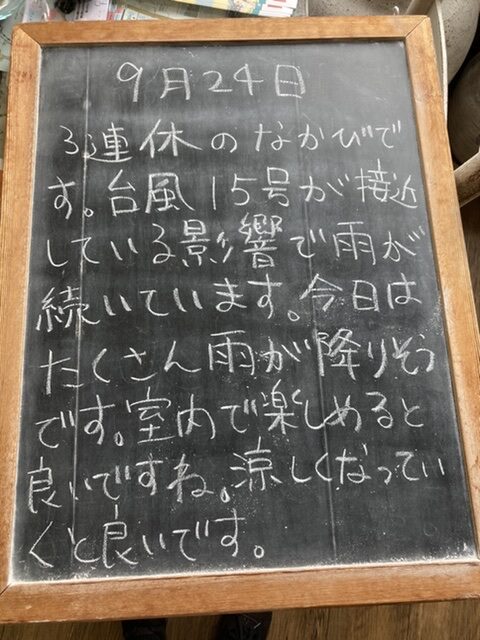 9月24日
3連休のなかびで
す。台風15号が接近
している影響で雨が
続いています。今日は
たくさん雨が降りそう
です。室内で楽しめると
良いですね。涼しくなってい
くと良いです。